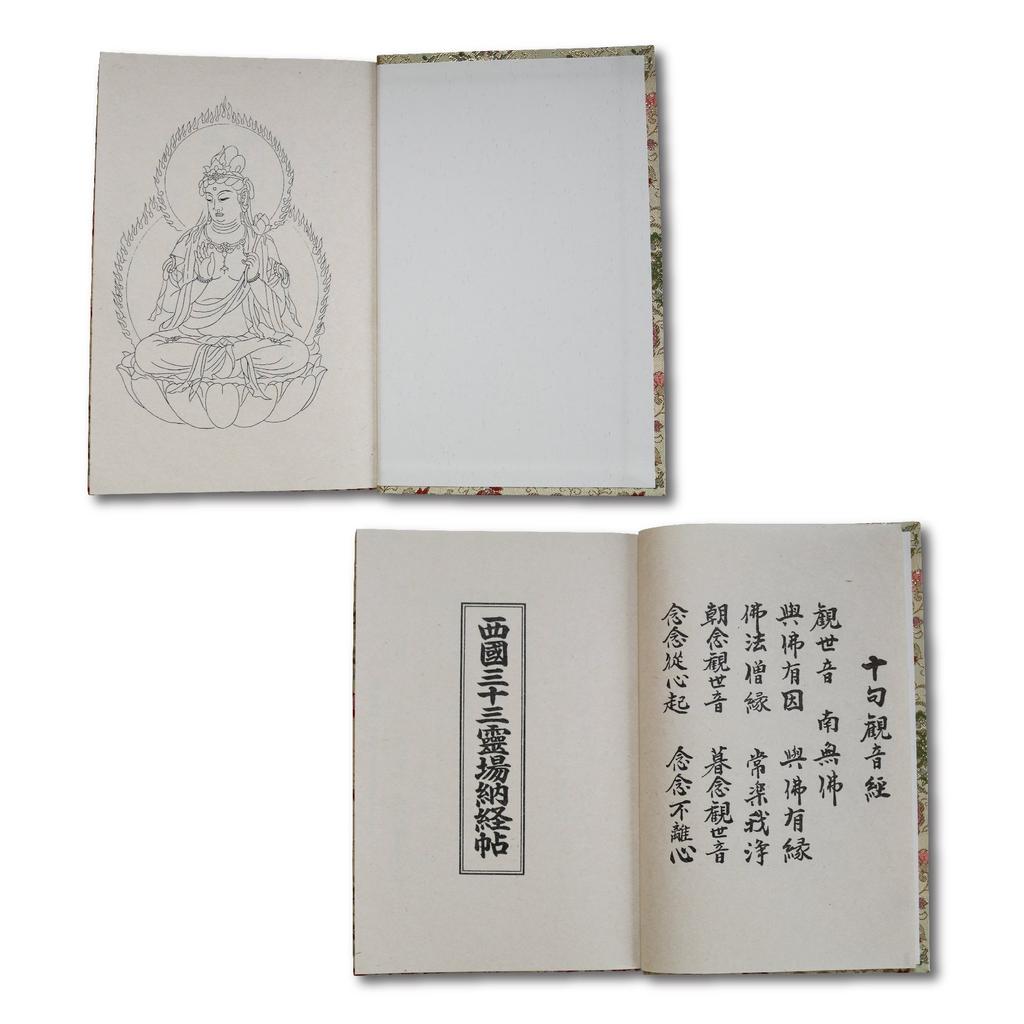 十句觀音經
觀世音 南無佛
與佛有因 與佛有縁
佛法僧縁 常楽我浄
朝念觀世音 暮念觀世音
念念從心起 念念不離心
西國三十三靈場納経帖